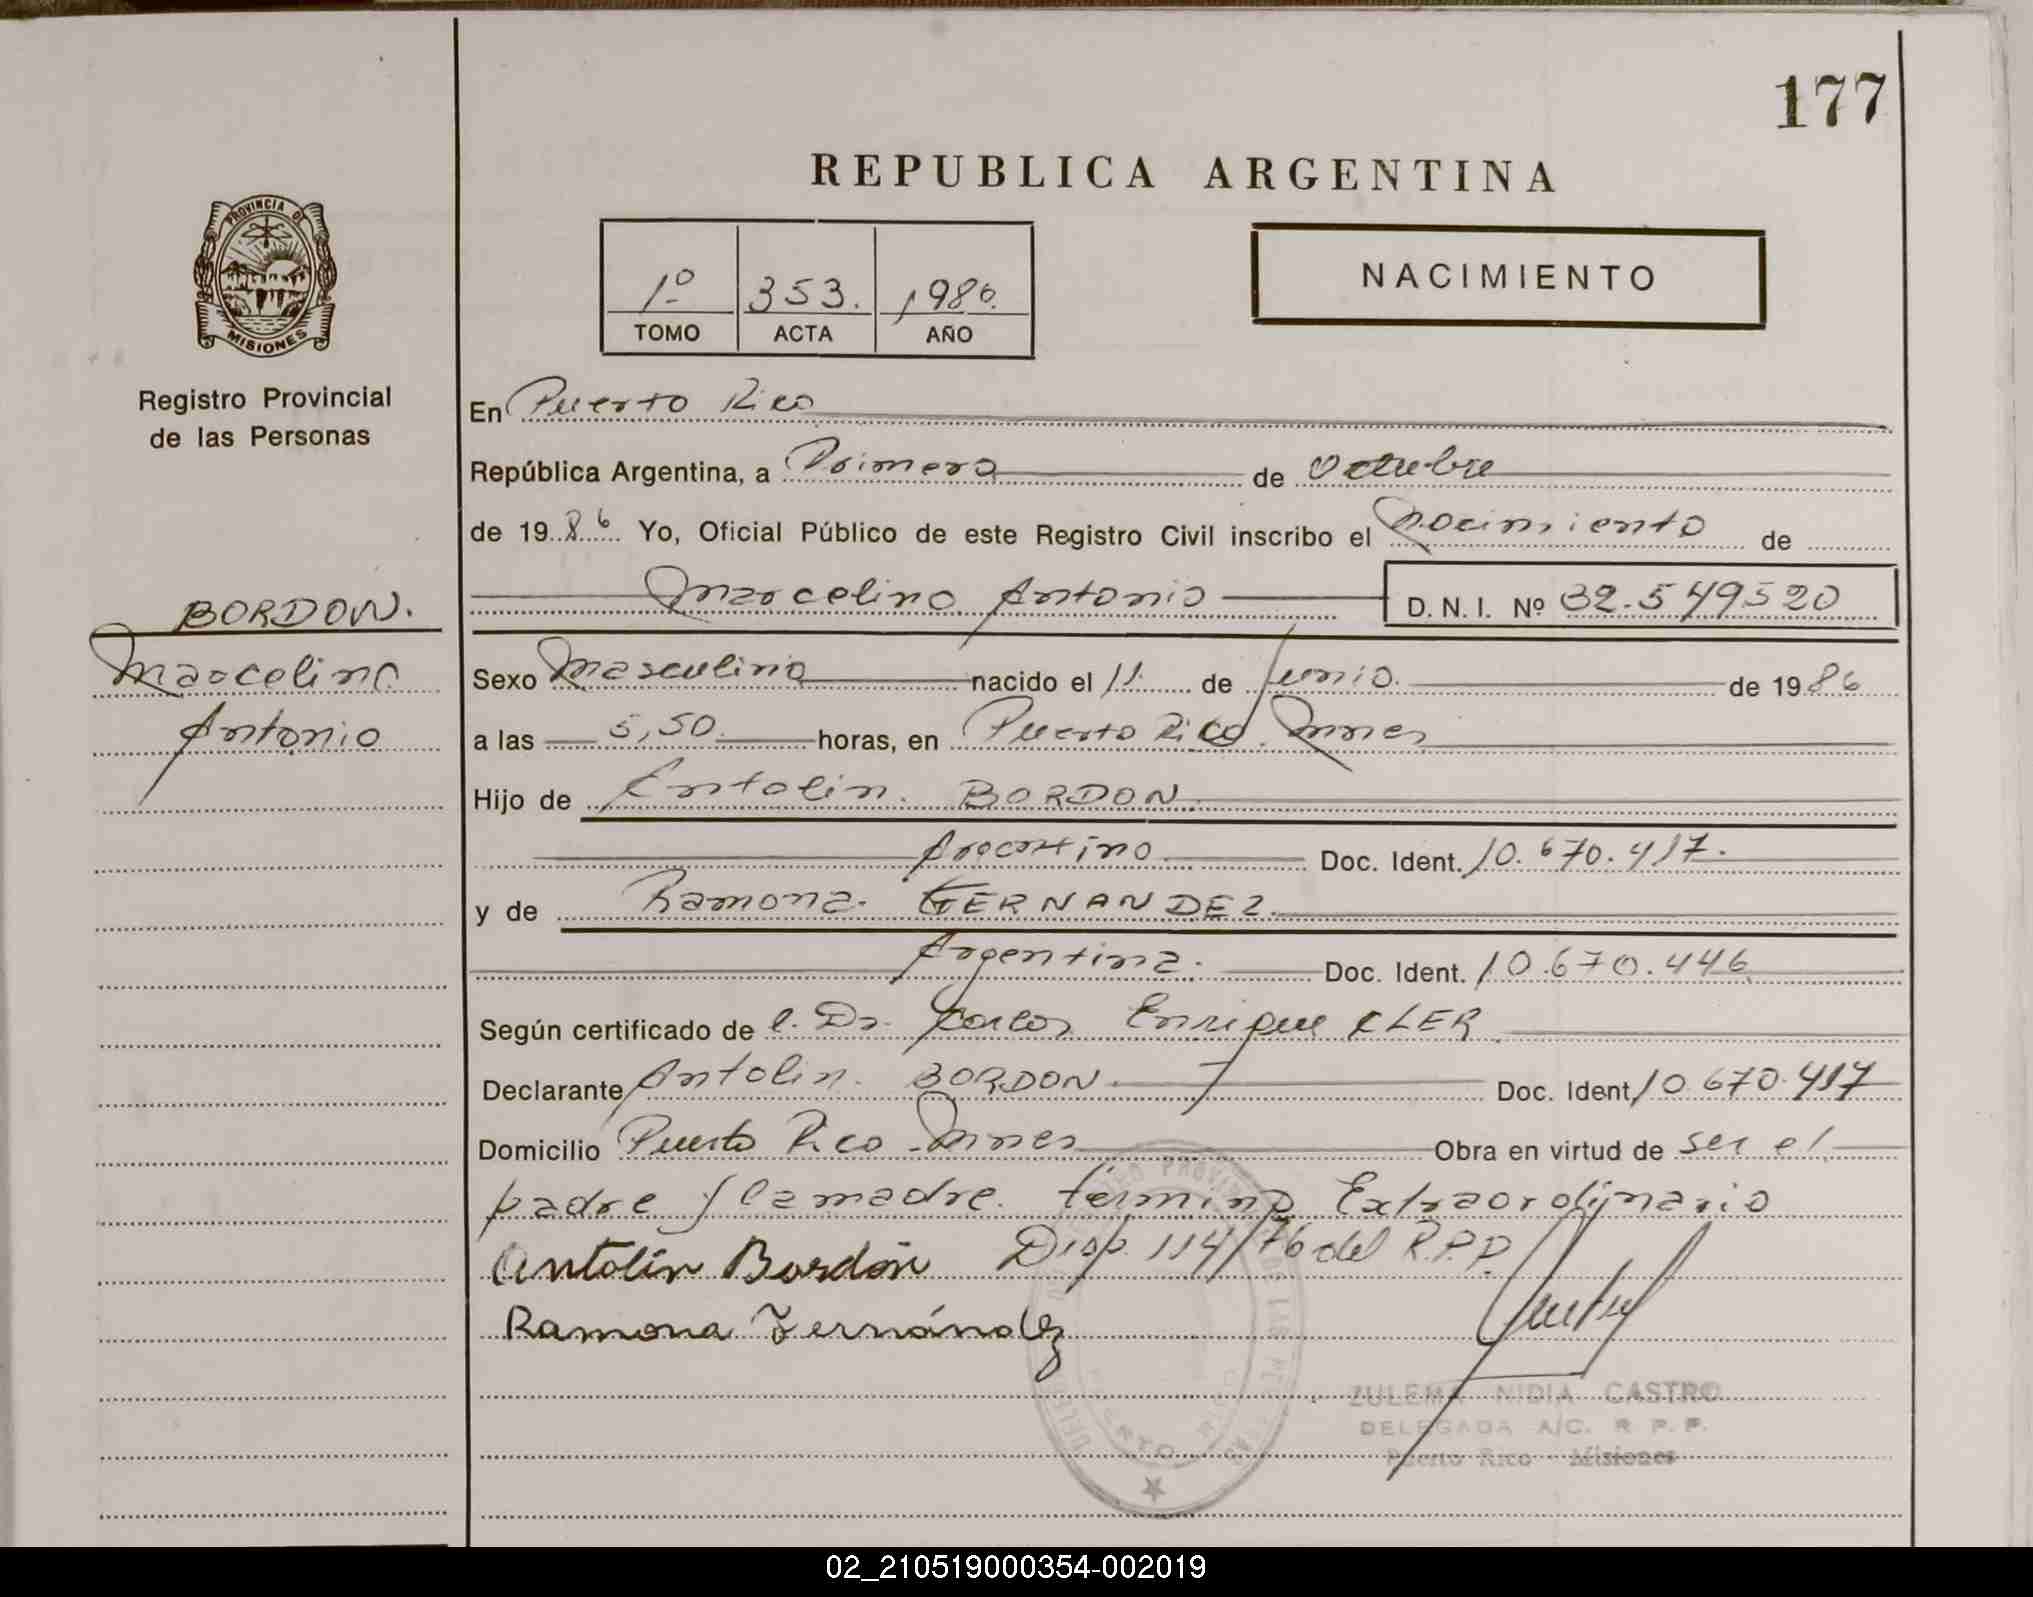 177
REPUBLICA ARGENTINA
PROVINCIA DE
MISIONES
Registro Provincial
de las Personas
1º 353. 1986.
TOMO ACTA AÑO
NACIMIENTO
En Puerto Rico
República Argentina, a Primero de Octubre
de 1986 Yo, Oficial Público de este Registro Civil inscribo el Nacimiento de
Marcelino Antonio D. N. I. Nº 32.549520
BORDON.
Marcelino
Antonio
Sexo Masculino nacido el 11 de Junio. de 1986
a las 5,50 horas, en Puerto Rico. Mnes
Hijo de Antolin. BORDON.
Argentino Doc. Ident. 10.670.417.
y de Ramona. FERNANDEZ.
Argentina. Doc. Ident. 10.670.446
Según certificado de l. Dr. Carlos Enrique KLER
Declarante Antolin. BORDON. Doc. Ident 10.670.417
Domicilio Puerto Rico - Mnes Obra en virtud de ser el
padre y la madre. término Extraordinario
Antolín Bordón Disp. 114/76 del R.P.P.
Ramona Fernández
ZULEMA NIDIA CASTRO
DELEGADA A/C. R. P. P.
Puerto Rico - Misiones
02_210519000354-002019